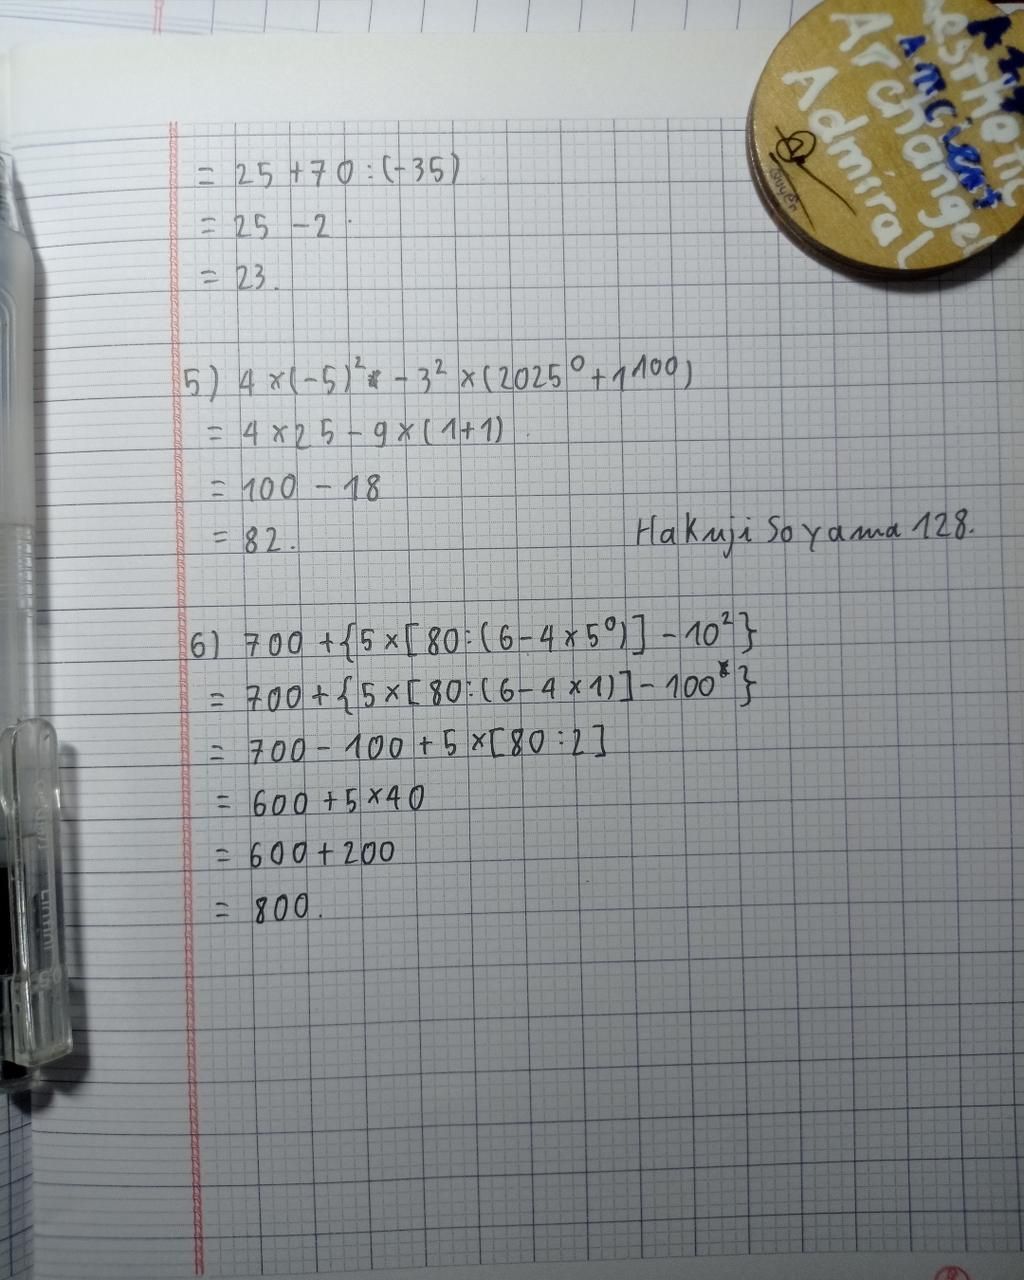 = 25 + 70 : (-35)
= 25 - 2
= 23.
5) 4 × (-5)² - 3² × (2025⁰ + 1¹⁰⁰)
= 4 × 25 - 9 × (1+1)
= 100 - 18
= 82.
Hakuji Soyama 128.
6) 700 + {5 × [80 : (6 - 4 × 5⁰)] - 10²}
= 700 + {5 × [80 : (6 - 4 × 1)] - 100}
= 700 - 100 + 5 × [80 : 2]
= 600 + 5 × 40
= 600 + 200
= 800.
Ancient
Archangel
Admiral